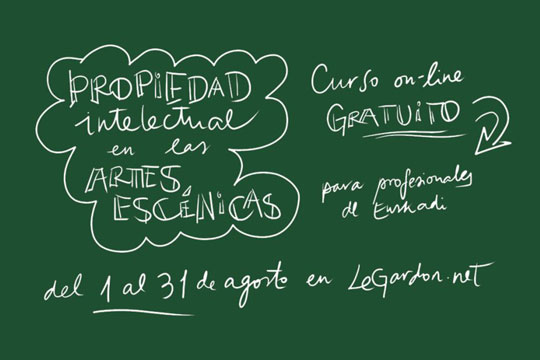 PROPIEDAD
intelectual
en las
ARTES
ESCÉNICAS
Curso on-line
GRATUITO
para profesionales
de Euskadi
del 1 al 31 de agosto en LeGardon.net